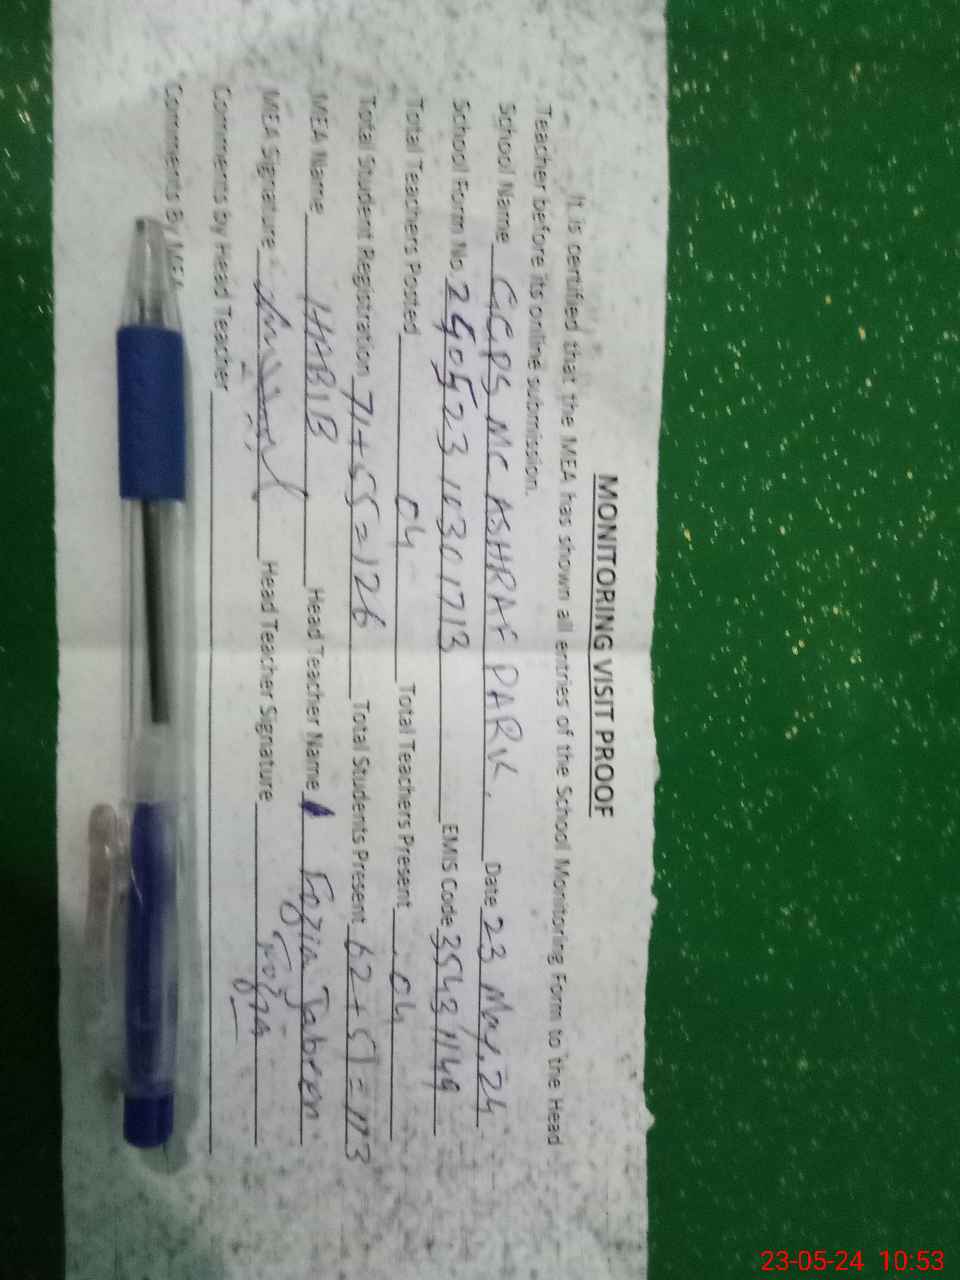 MONITORING VISIT PROOF
It is certified that the MEA has shown all entries of the School Monitoring Form to the Head
Teacher before its online submission.
School Name GGPS MC ASHRAF PARK. Date 23 May, 24
School Form No 240523 10301713 EMIS Code 35431149
Total Teachers Posted 04 Total Teachers Present 04
Total Student Registration 71+55=126 Total Students Present 62+51=113
MEA Name HABIB Head Teacher Name Fozia Jabeen
MEA Signature Head Teacher Signature Fozia
Comments by Head Teacher
Comments By MEA
23-05-24 10:53